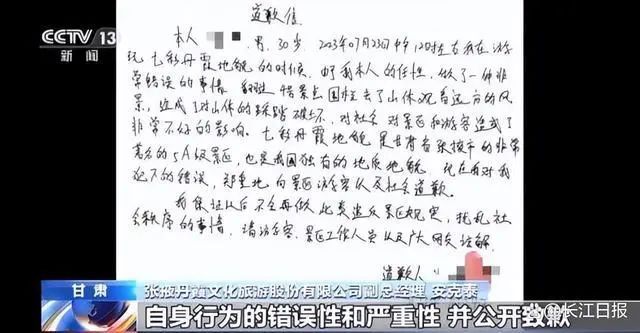 CCTV 13
新闻
道歉信
本人 男，30岁 2023年07月23日中午12时左右我在游
玩七彩丹霞地貌的时候，由于我本人的任性，做了一件非
常错误的事情 翻越 景点围栏去了山体观看远方的风
景，造成了对山体的踩踏破坏，对社会 对景区和游客造成了
非常不好的影响。七彩丹霞地貌 是甘肃省张掖市的非常
著名的5A级景区，也是我国独有的地质地貌 现在我对我
犯下的错误，郑重地向景区游客以及社会道歉。
我保证以后不会再做此类违反景区规定，扰乱社
会秩序的事情，请游客、景区工作人员以及广大网友谅解
道歉人
甘肃
张掖丹霞文化旅游股份有限公司副总经理 安克泰
自身行为的错误性和严重性 并公开致歉
@长江日报